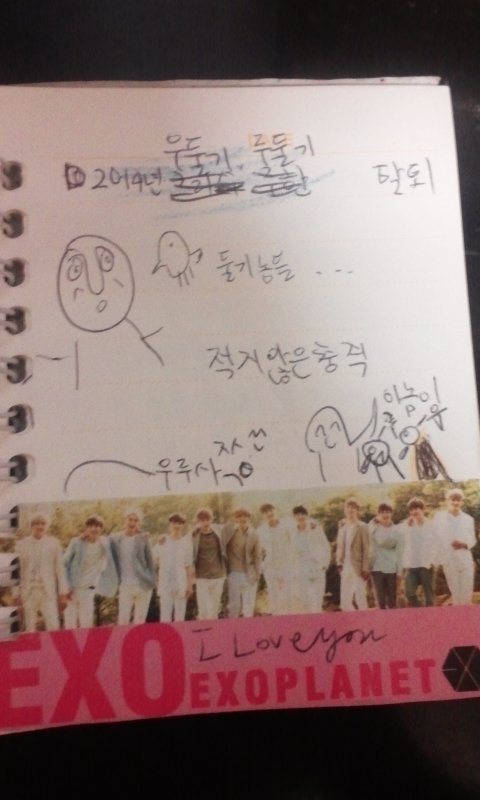 우둘기 루둘기
2014년 탈퇴
둘기놈들 ...
적지않은충격
자식
우루사
이놈이
루 우
EXO I Love you
EXOPLANET